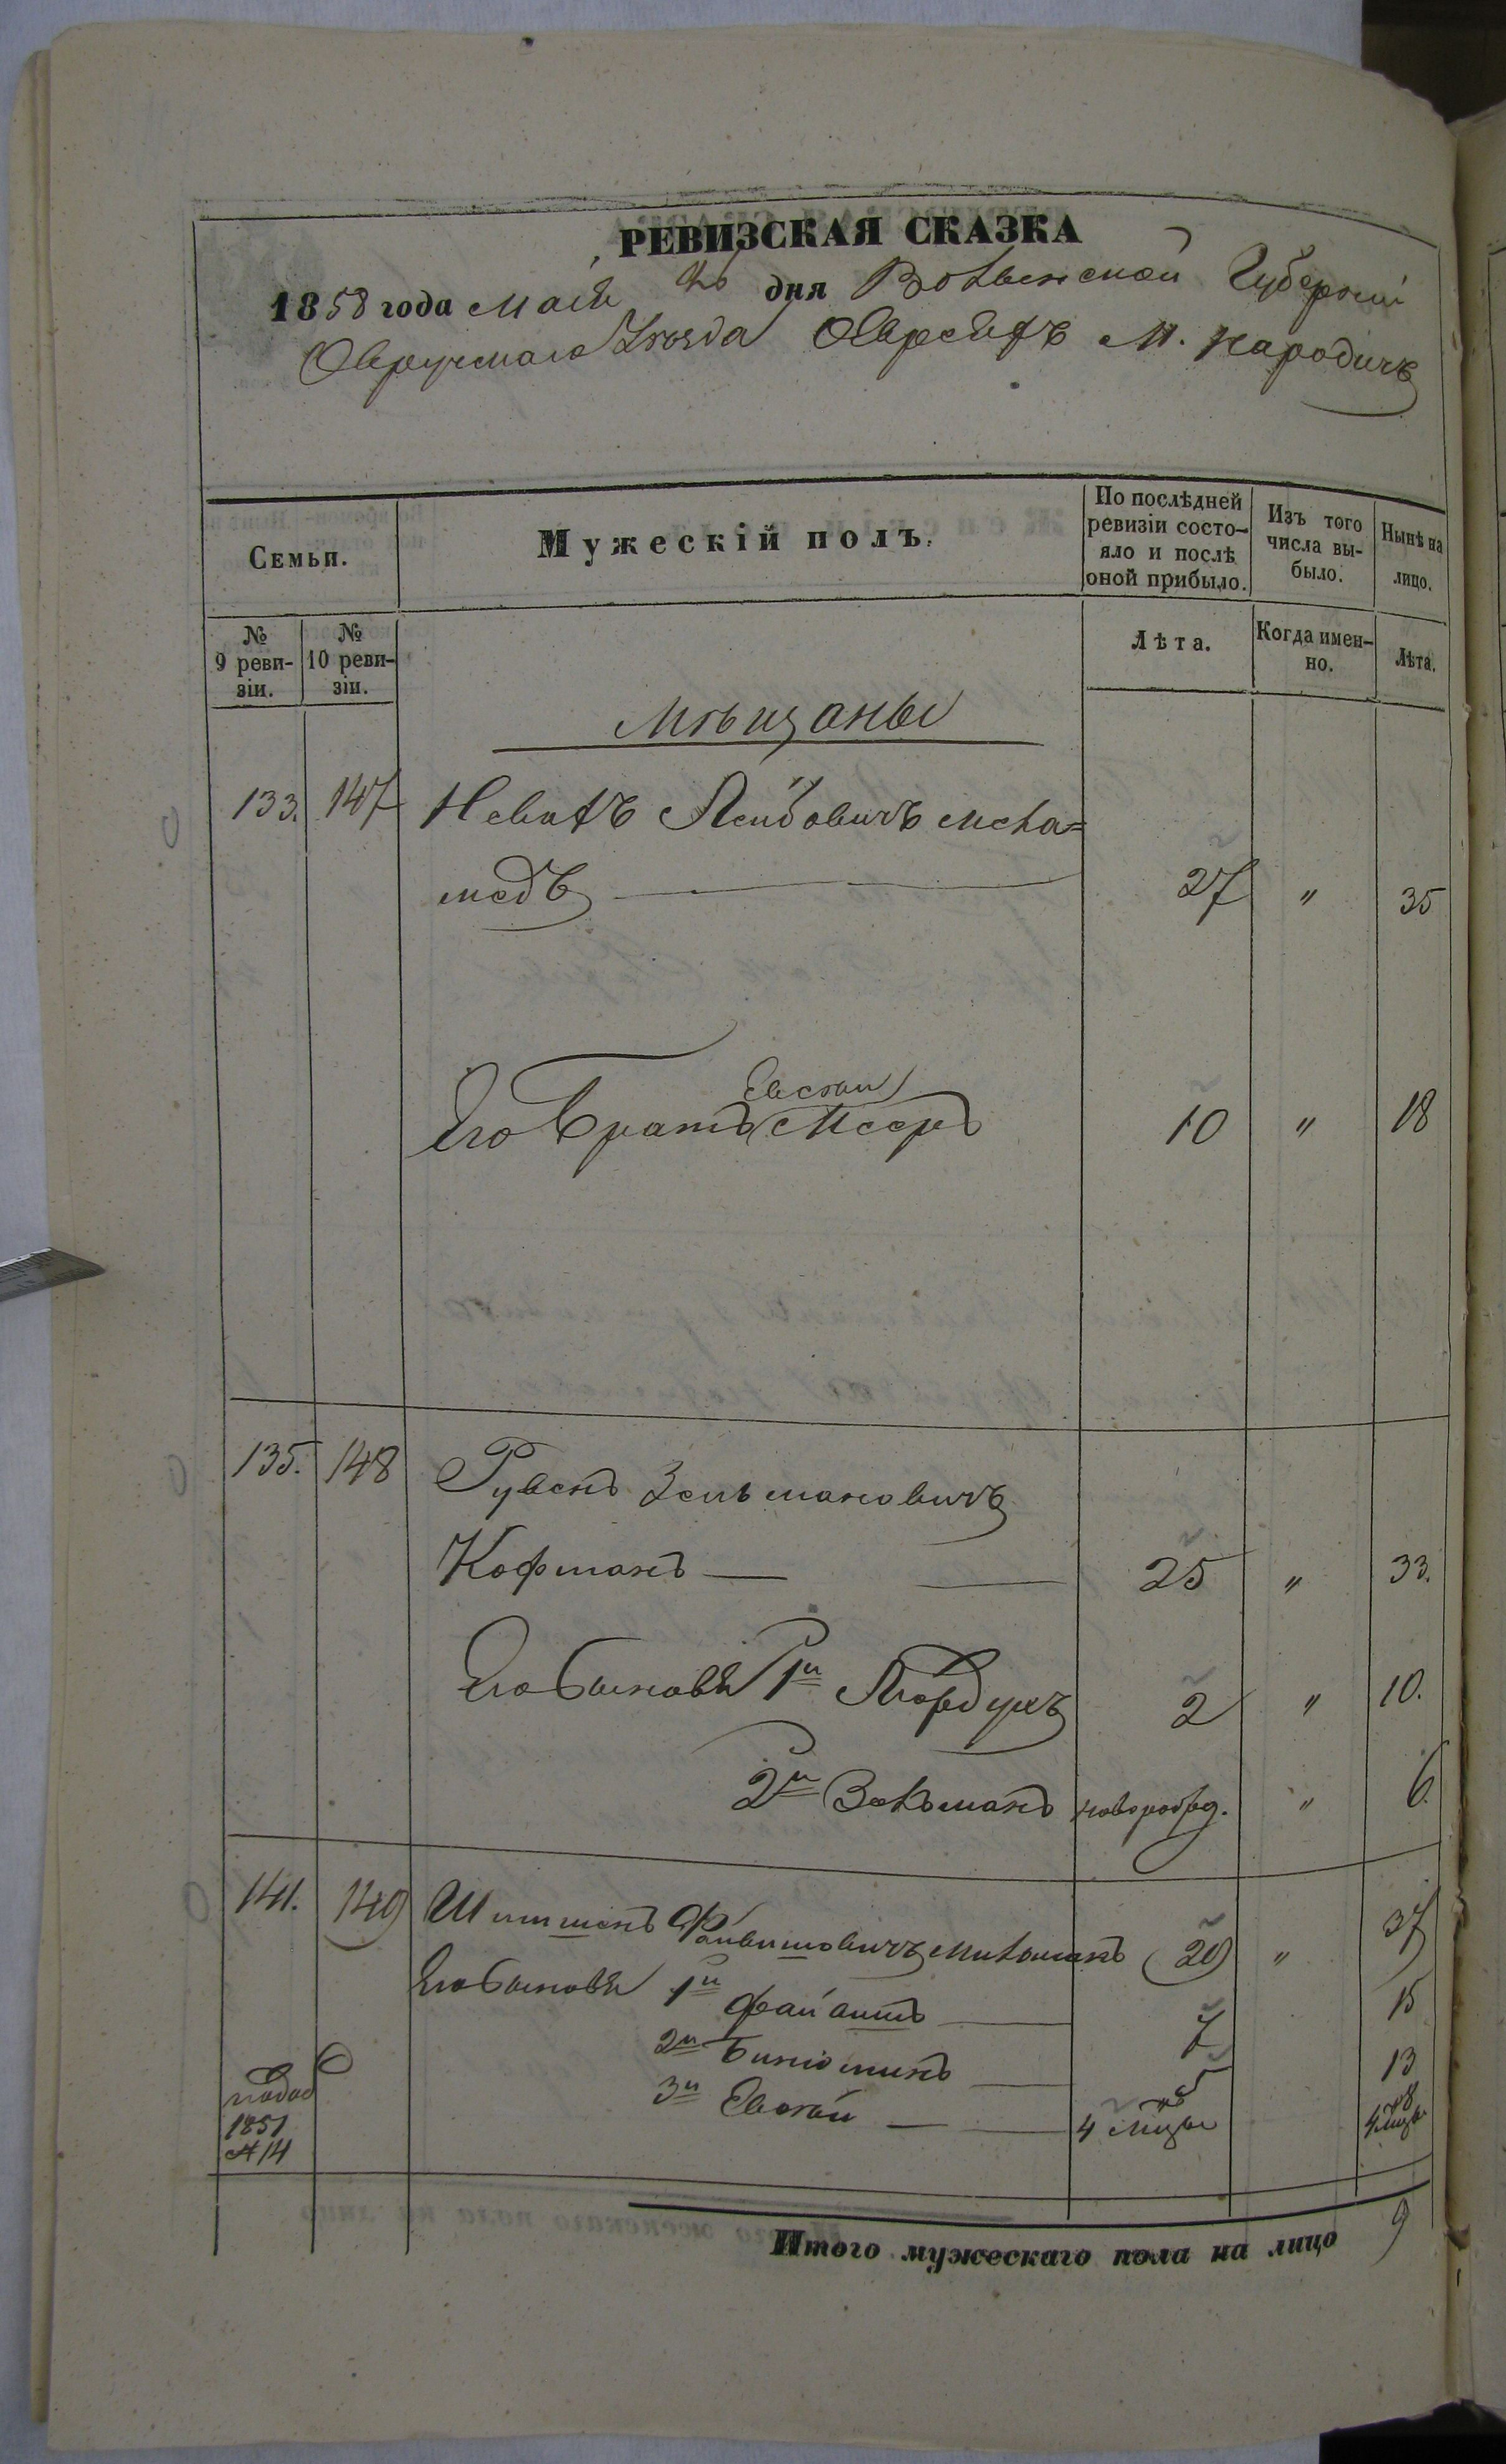 РЕВИЗСКАЯ СКАЗКА
1858 года Маія дня Волынской Губерніи
Овручскаго Уѣзда Евреевъ М. Народичъ
Семьи.
Мужескій полъ.
По послѣдней ревизіи состо-
яло и послѣ
оной прибыло.
Изъ того
числа вы-
было.
Нынѣ на
лицо.
№
9 реви-
зіи.
№
10 реви-
зіи.
Лѣта.
Когда имен-
но.
Лѣта.
Мѣщаны
133. 147 Лейбовичъ Мела=
медъ 27 " 35
Евсей
Его братъ Мееръ 10 " 18
135. 148 Рувенъ Зельмановичъ
Кофманъ 25 " 33.
Его сыновья 1й Мордухъ 2 " 10.
2й Зельманъ новорожд. " 6.
141. 149 Шимшенъ Файвишовичъ 29 " 37
Его сыновья 1й 7 15
2й Биніоминъ 5 13
3й Евсей 4 мцы 8
4 мцы
1851
№ 14
Итого мужескаго пола на лицо 9